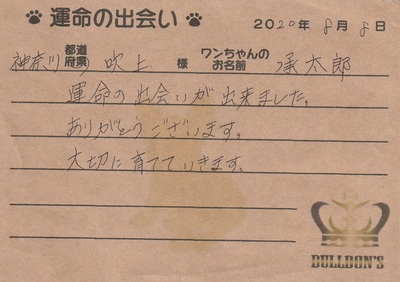 運命の出会い 2020年8月8日
神奈川 都道府県 吹上 様 ワンちゃんのお名前 承太郎
運命の出会いが出来ました。
ありがとうございます。
大切に育てていきます。
BULLDON'S